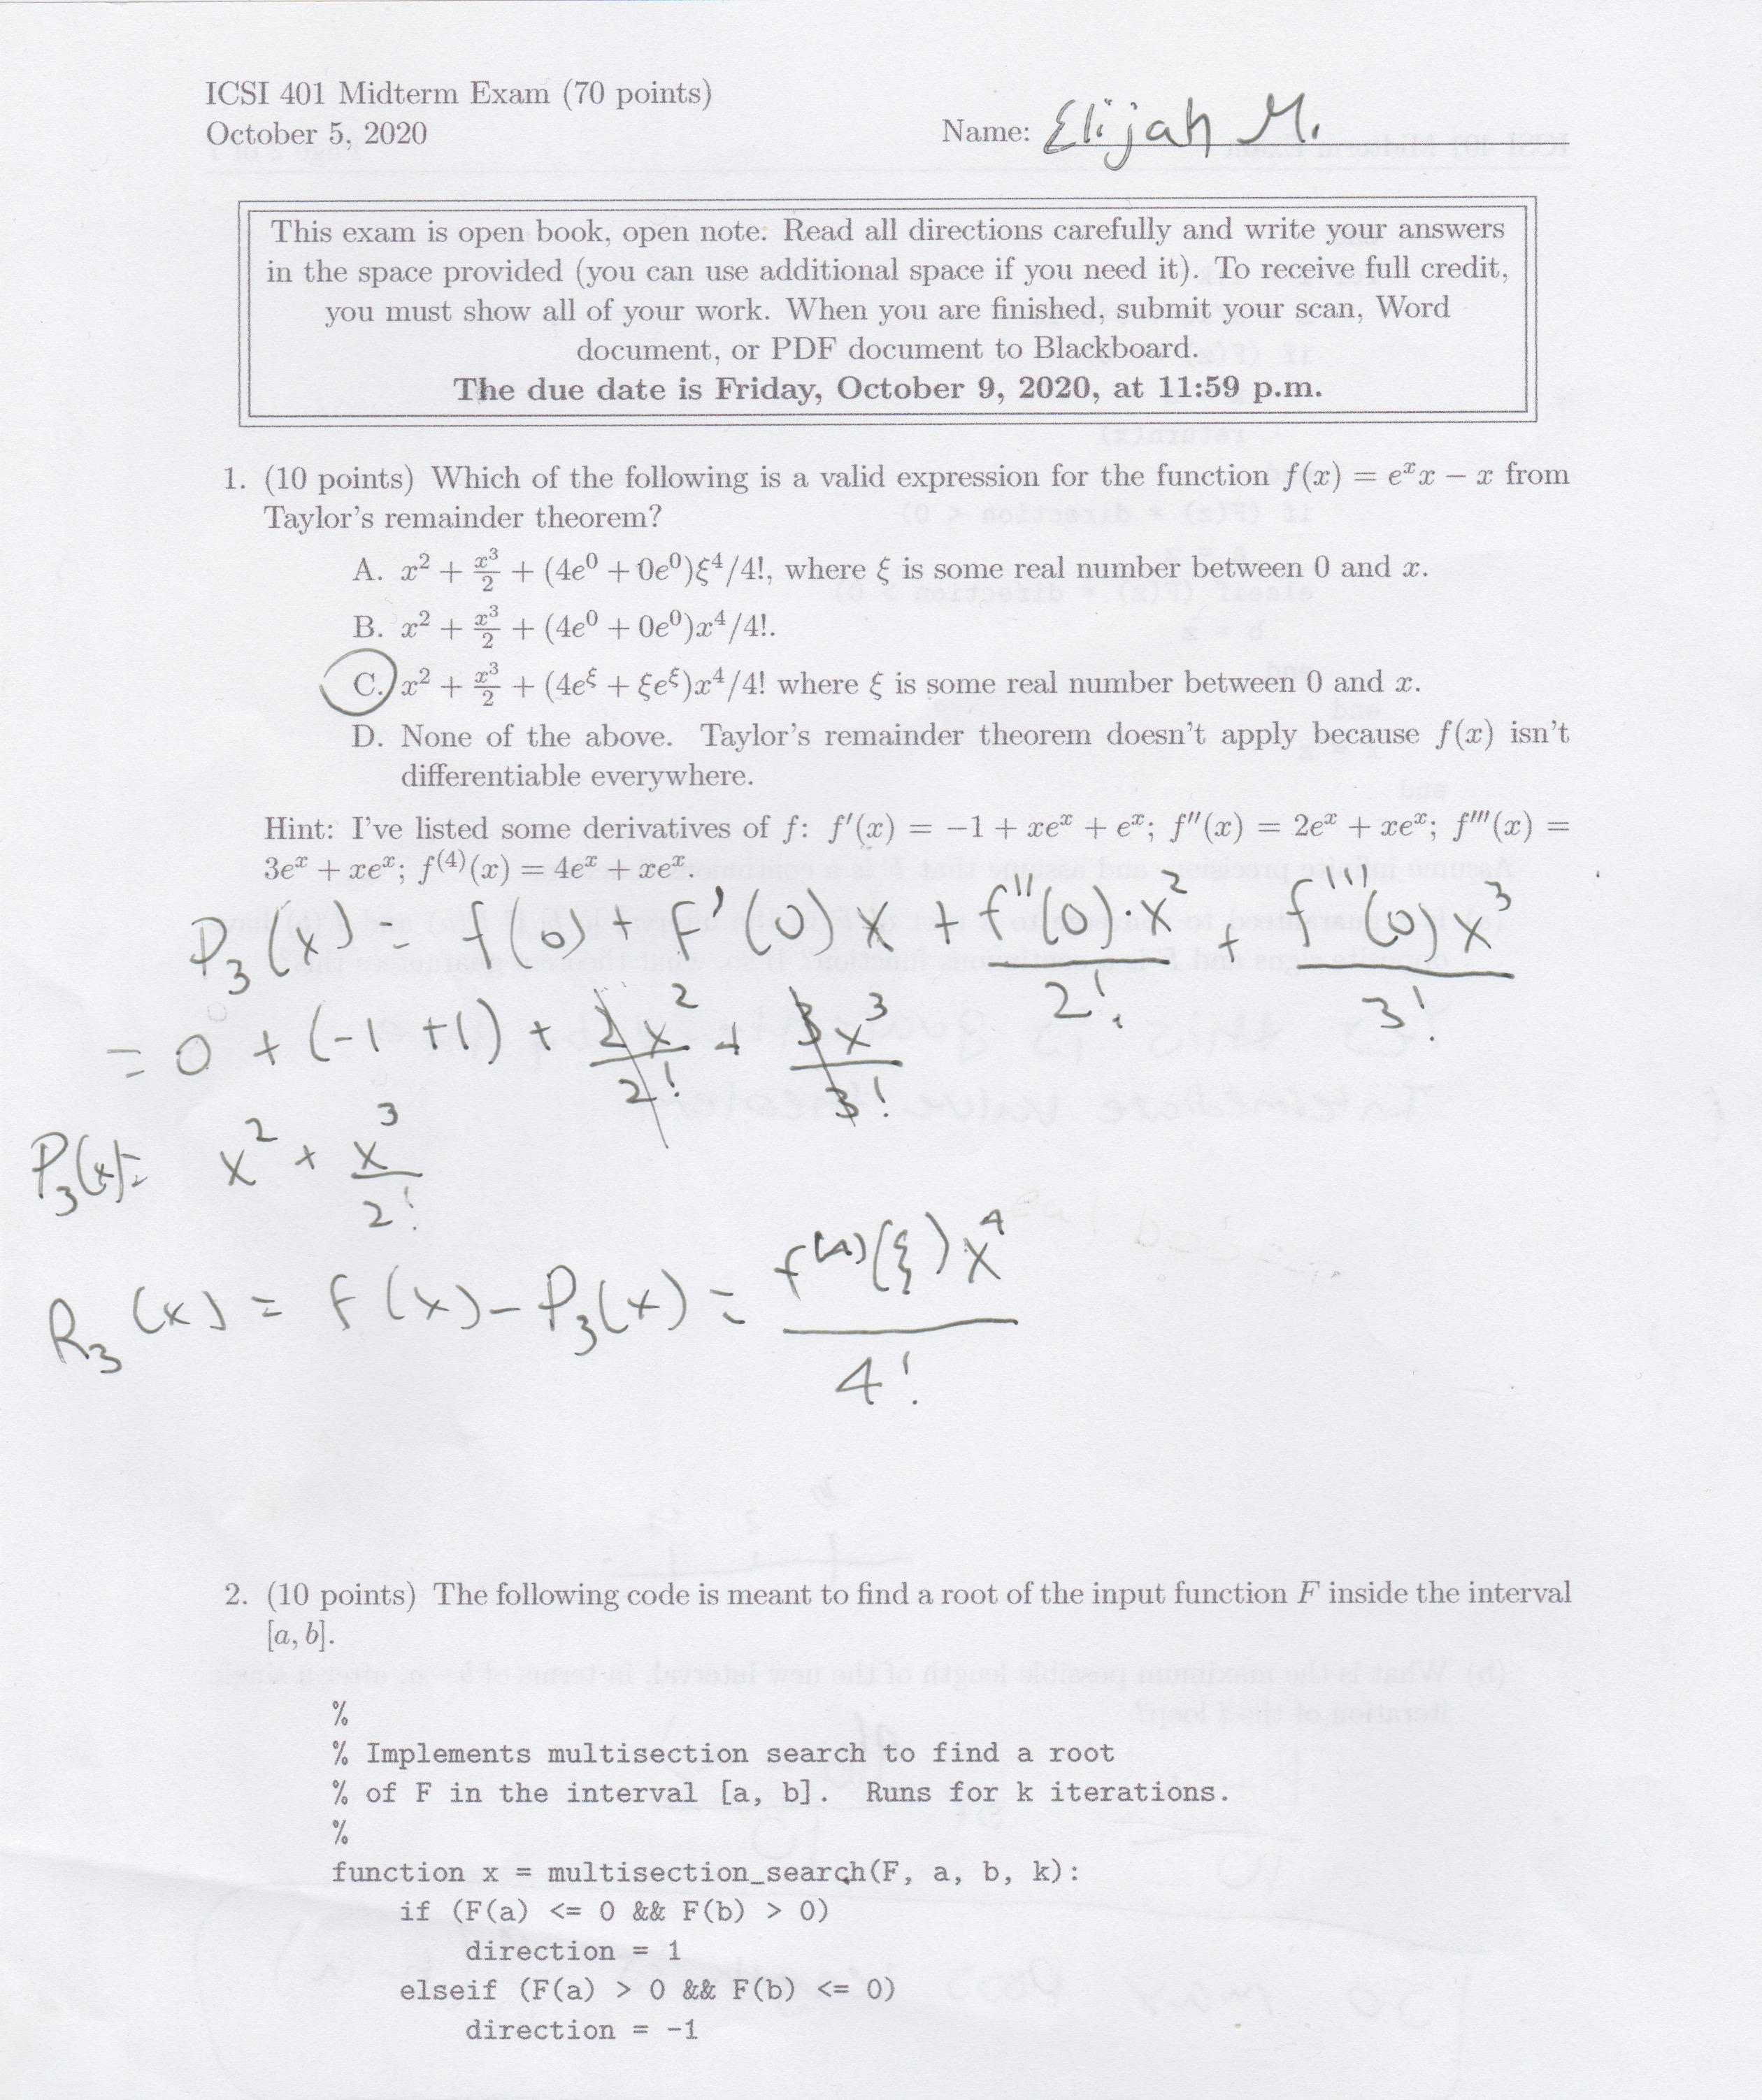 ICSI 401 Midterm Exam (70 points)
October 5, 2020
Name: Elijah M.
This exam is open book, open note. Read all directions carefully and write your answers
in the space provided (you can use additional space if you need it). To receive full credit,
you must show all of your work. When you are finished, submit your scan, Word
document, or PDF document to Blackboard.
The due date is Friday, October 9, 2020, at 11:59 p.m.
1. (10 points) Which of the following is a valid expression for the function f(x) = eˣx − x from
Taylor's remainder theorem?
A. x² + x³/2 + (4e⁰ + 0e⁰)ξ⁴/4!, where ξ is some real number between 0 and x.
B. x² + x³/2 + (4e⁰ + 0e⁰)x⁴/4!.
C. x² + x³/2 + (4e^ξ + ξe^ξ)x⁴/4! where ξ is some real number between 0 and x.
D. None of the above. Taylor's remainder theorem doesn't apply because f(x) isn't
differentiable everywhere.
Hint: I've listed some derivatives of f: f′(x) = −1 + xeˣ + eˣ; f″(x) = 2eˣ + xeˣ; f‴(x) =
3eˣ + xeˣ; f⁽⁴⁾(x) = 4eˣ + xeˣ.
P₃(x) = f(0) + f'(0) x + f''(0)·x²/2! + f'''(0) x³/3!
= 0 + (-1 +1) + 2x²/2! + 3x³/3!
P₃(x) = x² + x³/2!
R₃(x) = f(x) - P₃(x) = f⁽⁴⁾(ξ) x⁴/4!
2. (10 points) The following code is meant to find a root of the input function F inside the interval
[a, b].
%
% Implements multisection search to find a root
% of F in the interval [a, b].  Runs for k iterations.
%
function x = multisection_search(F, a, b, k):
if (F(a) <= 0 && F(b) > 0)
direction = 1
elseif (F(a) > 0 && F(b) <= 0)
direction = -1